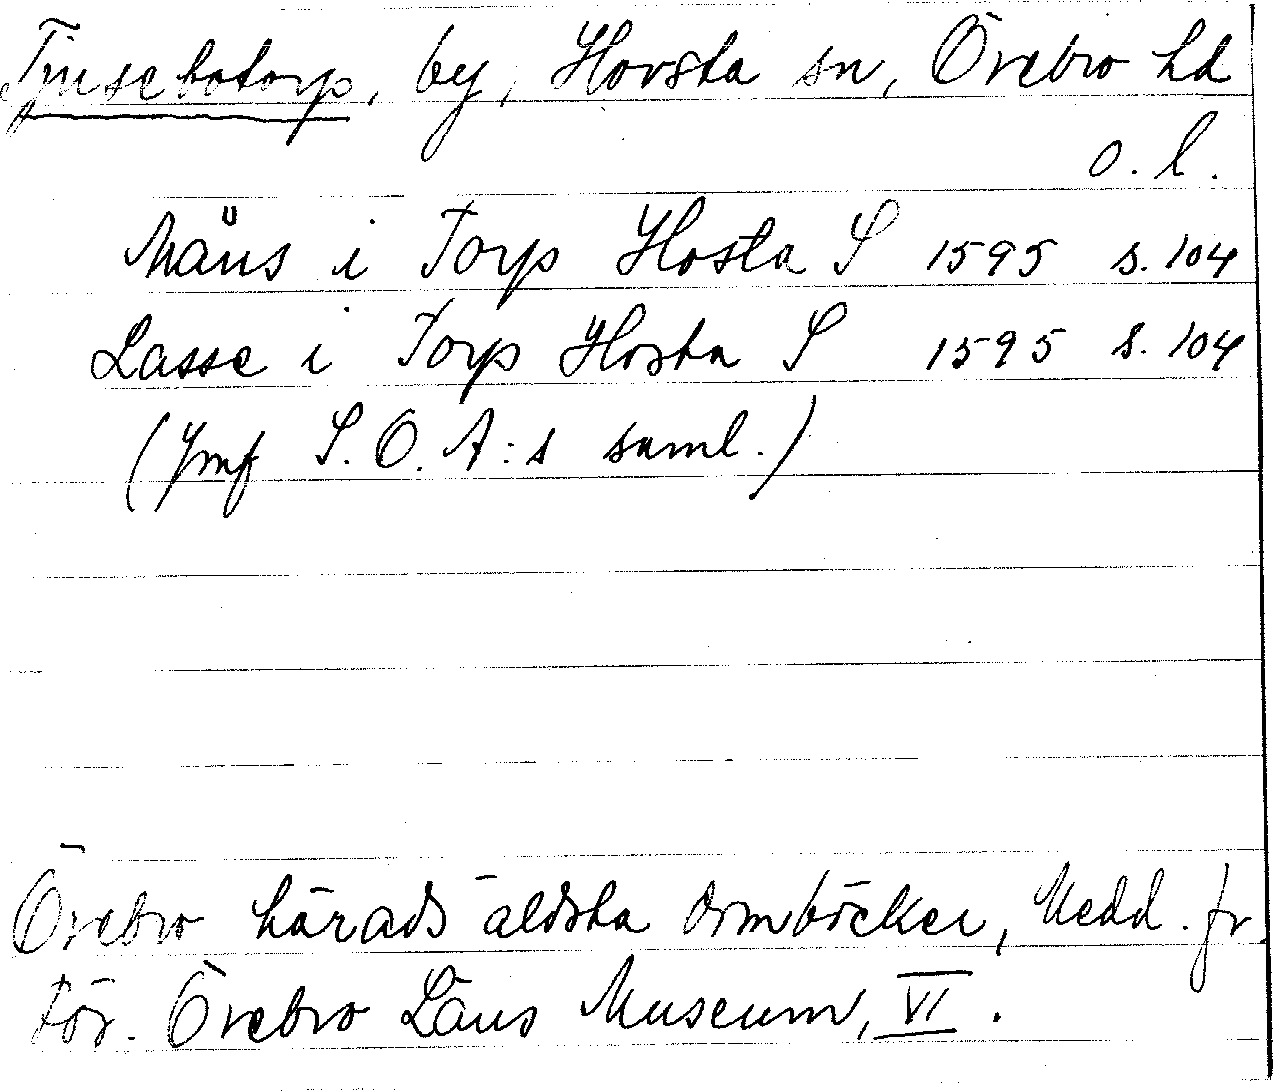 Tjusebotorp, by, Hovsta sn, Örebro hd
o. l.
Måns i Torp Hosta S 1595 s. 104
Lasse i Torp Hosta S 1595 s. 104
(Jmf S. O. A:s saml.)
Örebro härads äldsta domböcker, Medd. fr
För. Örebro Läns Museum, VI.